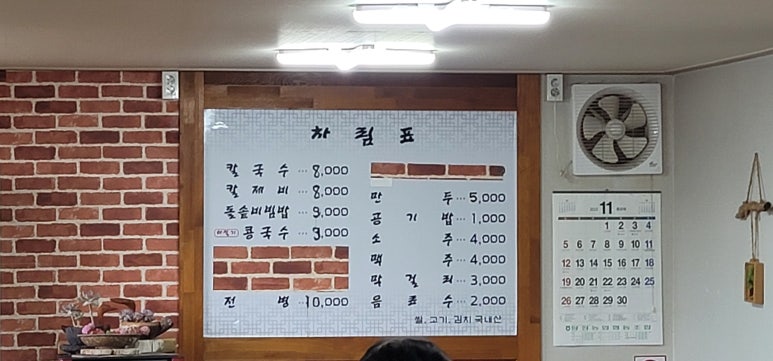 차 림 표
칼 국 수 … 8,000
칼 제 비 … 8,000
돌솥비빔밥 … 9,000
콩국수 … 9,000
전 병 … 10,000
만 두 … 5,000
공 기 밥 … 1,000
소 주 … 4,000
맥 주 … 4,000
막 걸 리 … 3,000
음 료 수 … 2,000
쌀, 고기, 김치 국내산
11
1 2 3 4
5 6 7 8 9 10 11
12 13 14 15 16 17 18
19 20 21 22 23 24 25
26 27 28 29 30